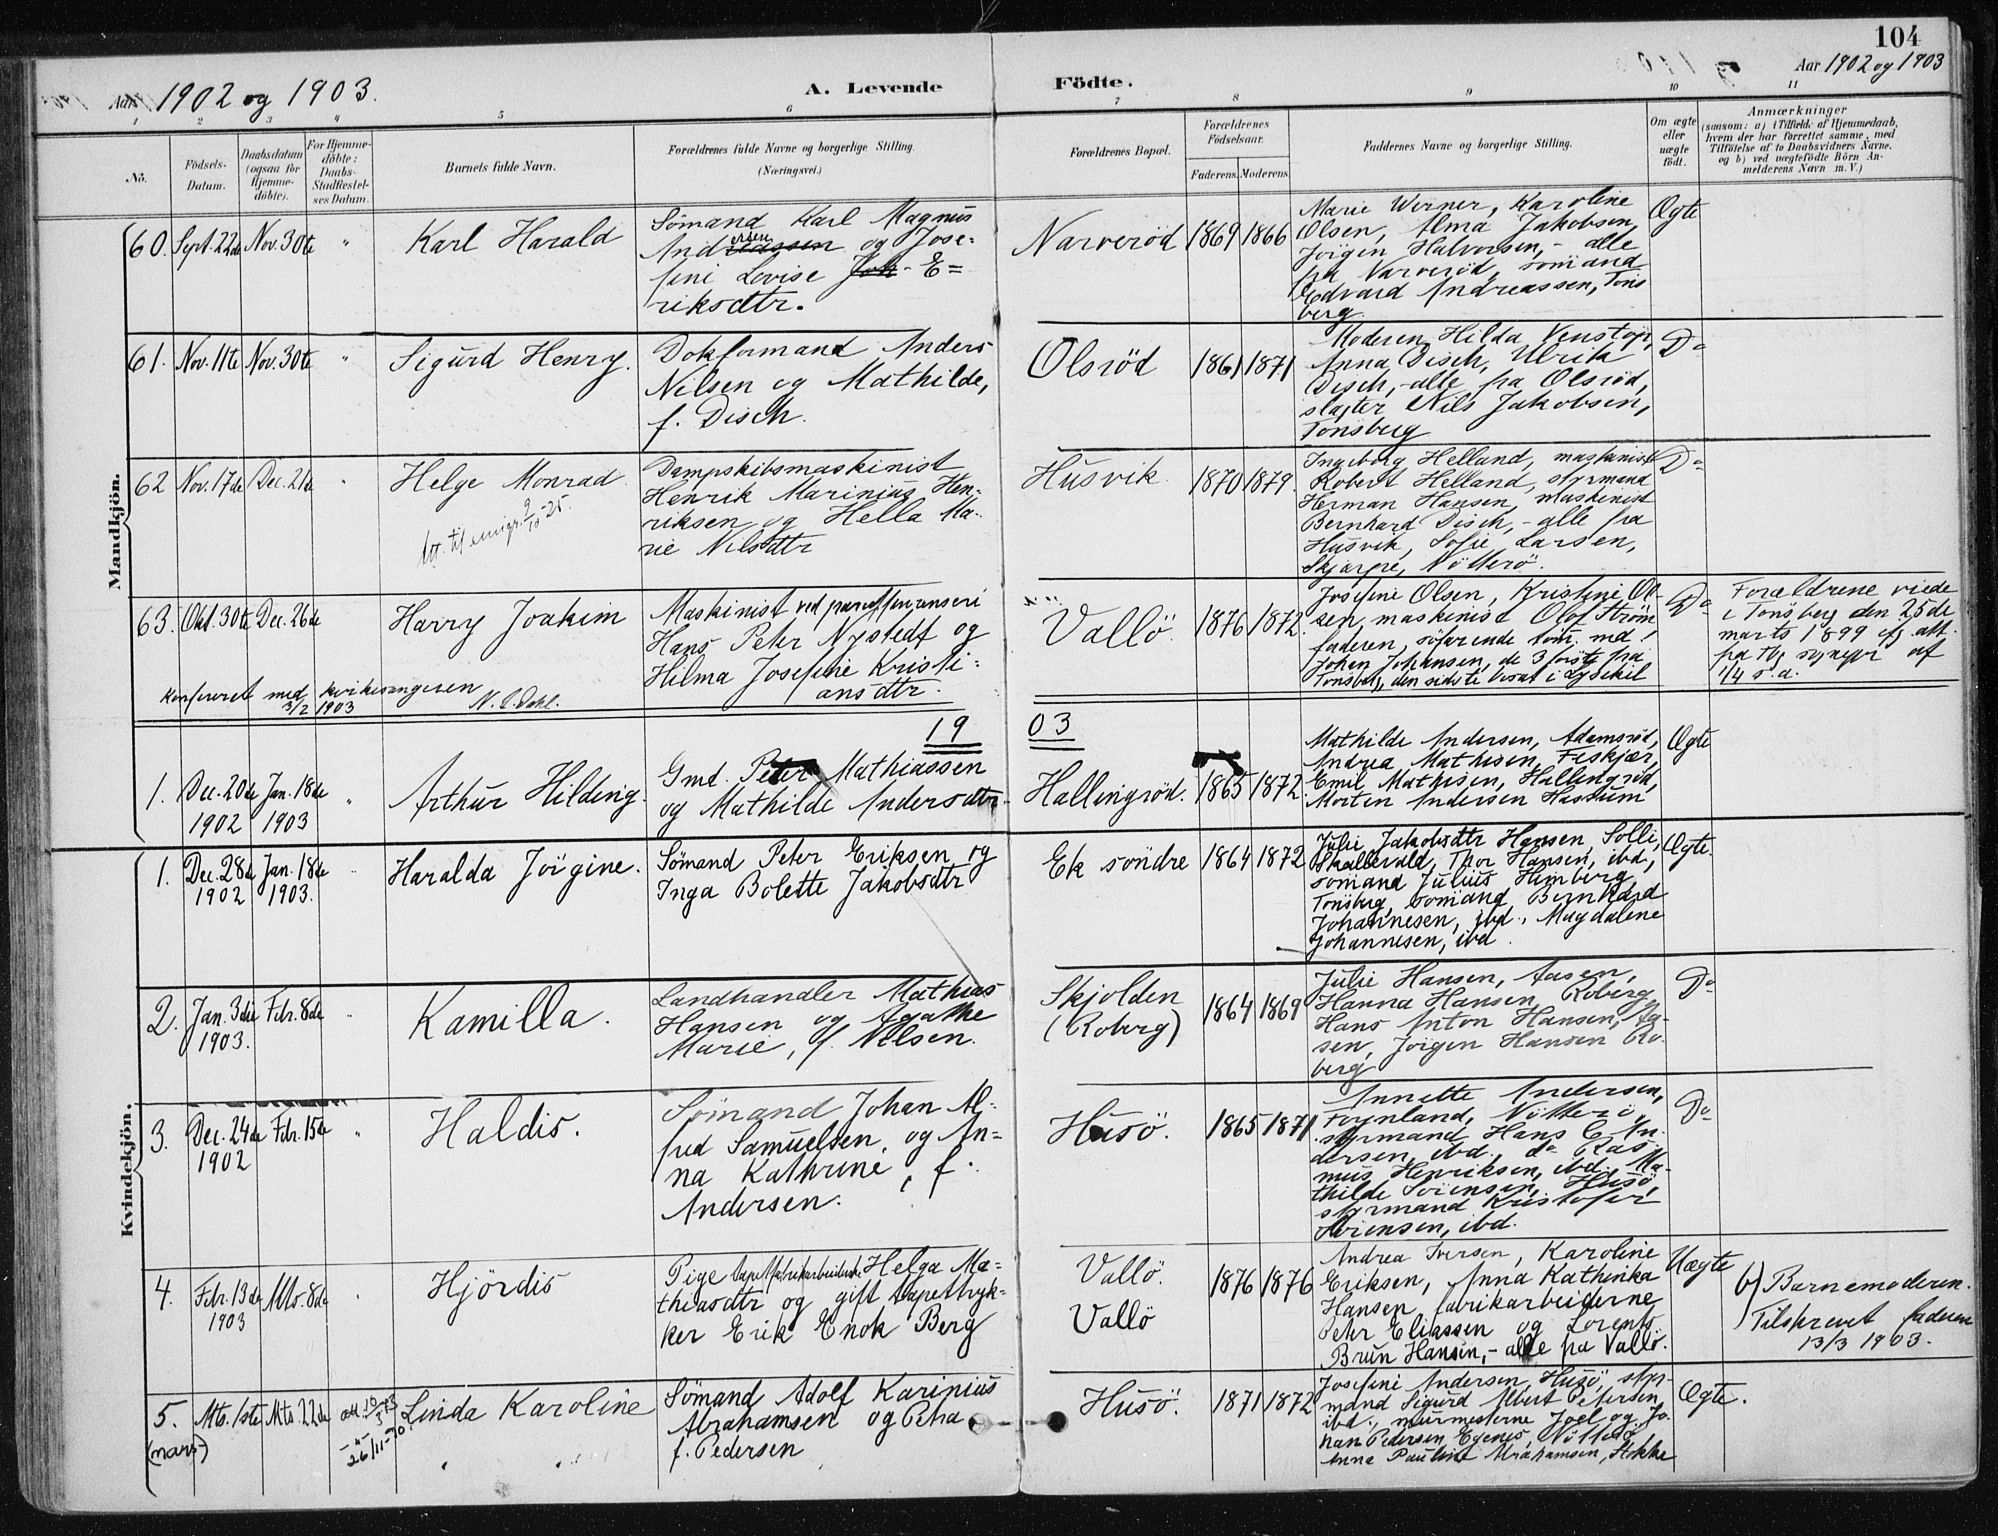 104
Aar 1902 og 1903.
A. Levende
Födte.
Aar 1902 og 1903
1 2 3 4 5 6 7 8 9 10 11
No.
Födsels-
Datum.
Daabsdatum
(ogsaa for
Hjemme-
döbte).
For Hjemme-
döbte:
Daabs-
Stadfæstel-
ses Datum.
Barnets fulde Navn.
Forældrenes fulde Navne og borgerlige Stilling.
(Næringsvei.)
Forældrenes Bopæl.
Forældrenes
Födselsaar.
Faderens. Moderens.
Faddernes Navne og borgerlige Stilling.
Om ægte
eller
uægte
födt.
Anmærkninger
(saasom: a) i Tilfælde af Hjemmedaab,
hvem der har forrettet samme, med
Tilföielse af to Daabsvidners Navne,
og b) ved uægtefödte Börn An-
melderens Navn m. V.)
Mandkjön.
60. Sept. 22de Nov. 30te "
Karl Harald
Sömand Karl Magnus
Andersen og Jose-
fine Lovise E=
riksdtr.
Narveröd 1869 1866
Marie Werner, Karoline
Olsen, Alma Jakobsen,
Jörgen Halvorsen, - alle
fra Narveröd, sömand
Edvard Andreassen, Töns
berg
Ægte
61. Nov. 11te Nov. 30te "
Sigurd Henry.
Dokformand Anders
Nilsen og Mathilde,
f. Disch.
Olsröd 1861 1871
Moderen, Hilda Venstöp,
Anna Disch, Ulrik
Disch, - alle fra Olsröd,
slagter Nils Jakobsen,
Tönsberg
Do
62 Nov. 17de Dec. 21de "
Helge Monrad
att. til emigr. 9/10-25.
Dampskibsmaskinist
Henrik Marinius Hen-
riksen og Hella Ma-
rie Nilsdtr
Husvik 1870 1879.
Ingeborg Helland, maskinist
Robert Helland, styrmand
Herman Hansen, maskinist
Bernhard Disch, - alle fra
Husvik, Sofie Larsen,
Skjærpe, Nötterö.
Do
63. Okt. 30te Dec. 26de
Harry Joakim
Maskinist ved
Hans Peter Nystedt og
Hilma Josefine Kristi-
ansdtr.
Vallö. 1876 1872.
Josefine Olsen, Kristine Ol-
sen, maskinist Olof Ström
faderen, söfarende töm. md
Johan Johansen, de 3 förste fra
Tönsberg, den sidste
Do
Forældrene viede
i Tönsberg den 25de
marts 1899 iflg. att.
fra Tbg sognepr af
1/4 s. a.
Konfereret med kirkesangeren
3/2 1903 N. C. Dahl.
19 03
1. Dec. 20de Jan. 18de "
1902 1903
Arthur Hilding.
Gmd. Peter Mathiassen
og Mathilde Andersdtr.
Hallingröd. 1865 1872.
Mathilde Andersen, Adamsröd,
Andrea Mathisen, Feskjær,
Emil Mathisen, Hallingröd,
Morten Andersen Hassum
Ægte
Kvindekjön.
1. Dec. 28de Jan. 18de "
1902 1903.
Haralda Jörgine.
Sömand Peter Eriksen og
Inga Bolette Jakobsdtr
Ek söndre 1864 1872
Julie Jakobsdtr Hansen, Solli,
Skallevald, Thor Hansen, ibd,
sömand Julius Himberg,
Tönsberg, sömand Bernhard
Johannesen, ibd., Magdalene
Johannesen, ibd.
Ægte.
2. Jan. 3die Febr. 8de "
1903.
Kamilla.
Landhandler Mathias
Hansen og Agathe
Marie, f. Nilsen.
Skjolden
(Roberg)
1864 1869
Julie Hansen, Aasen,
Hanna Hansen, Roberg,
Hans Anton Hansen, Aa-
sen, Jörgen Hansen Ro-
berg
Do
3. Dec. 24de Febr. 15de "
1902
Haldis.
Sömand Johan Al-
fred Samuelsen, og An=
na Kathrine, f.
Andersen.
Husö. 1865 1871
Annette Andersen,
Föynland, Nötterö,
styrmand Hans C An-
dersen, ibd., do Ras-
mus Henriksen, ibd., Ma-
thilde Sörensen, Husö,
styrmand Kristofer
Sörensen, ibd.
Do
4. Febr. 13de Mts. 8de "
1903
Hjördis
Pige tapetfabrikarbeiderske Helga Ma=
thiasdtr og gift tapettryk-
ker Erik Enok Berg
Vallö.
Vallö
1876 1876
Andrea Iversen, Karoline
Eriksen, Anna Kathinka
Hansen, fabrikarbeiderne
Peter Eliassen og Lorents
Brun Hansen, - alle fra Vallö.
Uægte
b) Barnemoderen.
Tilskrevet faderen
13/3 1903.
5. Mts. 1ste Mts. 22de
(mars)
att. 10/3 73
-"- 26/11-70
Linda Karoline
Sömand Adolf Karinius
Abrahamsen og Petra
f. Pedersen
Husö. 1871 1872
Josefine Andersen, Husö, styr-
mand Sigurd Albert Petersen,
ibd., murmesterne Joel og Jo-
han Pedersen Egenes, Nötterö,
Anna Pauline Abrahamsen, Stokke
Ægte.